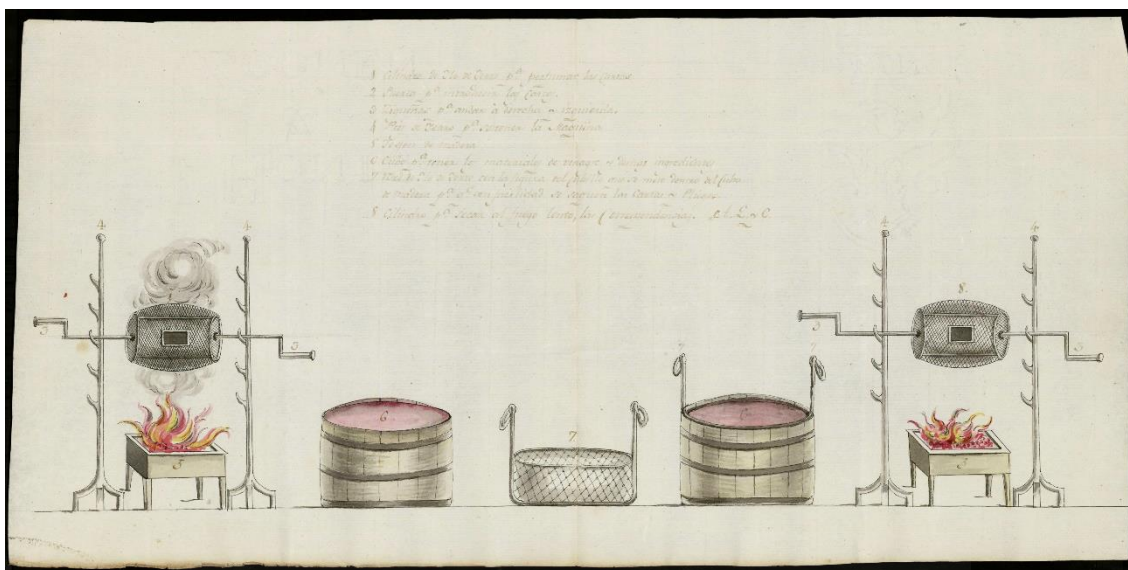 1 Cilindro de Ylo de Fierro pª perfumar las Cartas.
2 Puerta pª introducir las Cartas.
3 Cigueñas pª andar a derecha e izquierda.
4 Pies de Fierro pª sostener la Maquina
5 de madera
6 Cubo pª poner los materiales de vinagre y demas ingredientes
7 de Ylo de Fierro con la figura del que se mete dentro del Cubo
de madera pª qº con se saquen las Cartas o Pliegos.
8 Cilindro pª Secar al fuego lento, las Correspondencias.
4 4 4 4
1 8.
3 3 3 3
7 7
6 7 6
5 5